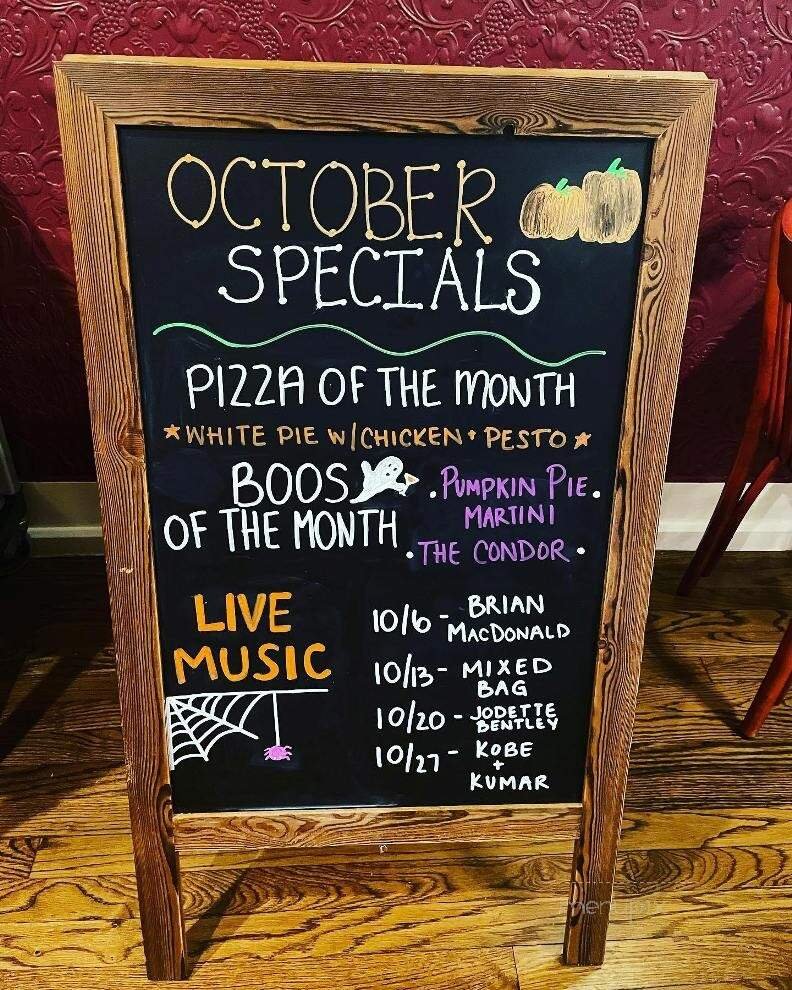 OCTOBER
SPECIALS
PIZZA OF THE MONTH
*WHITE PIE W/CHICKEN + PESTO*
BOOS
OF THE MONTH
.PUMPKIN PIE.
MARTINI
.THE CONDOR.
LIVE
MUSIC
10/6 - BRIAN
MACDONALD
10/13 - MIXED
BAG
10/20 - JODETTE
BENTLEY
10/27 - KOBE
+
KUMAR